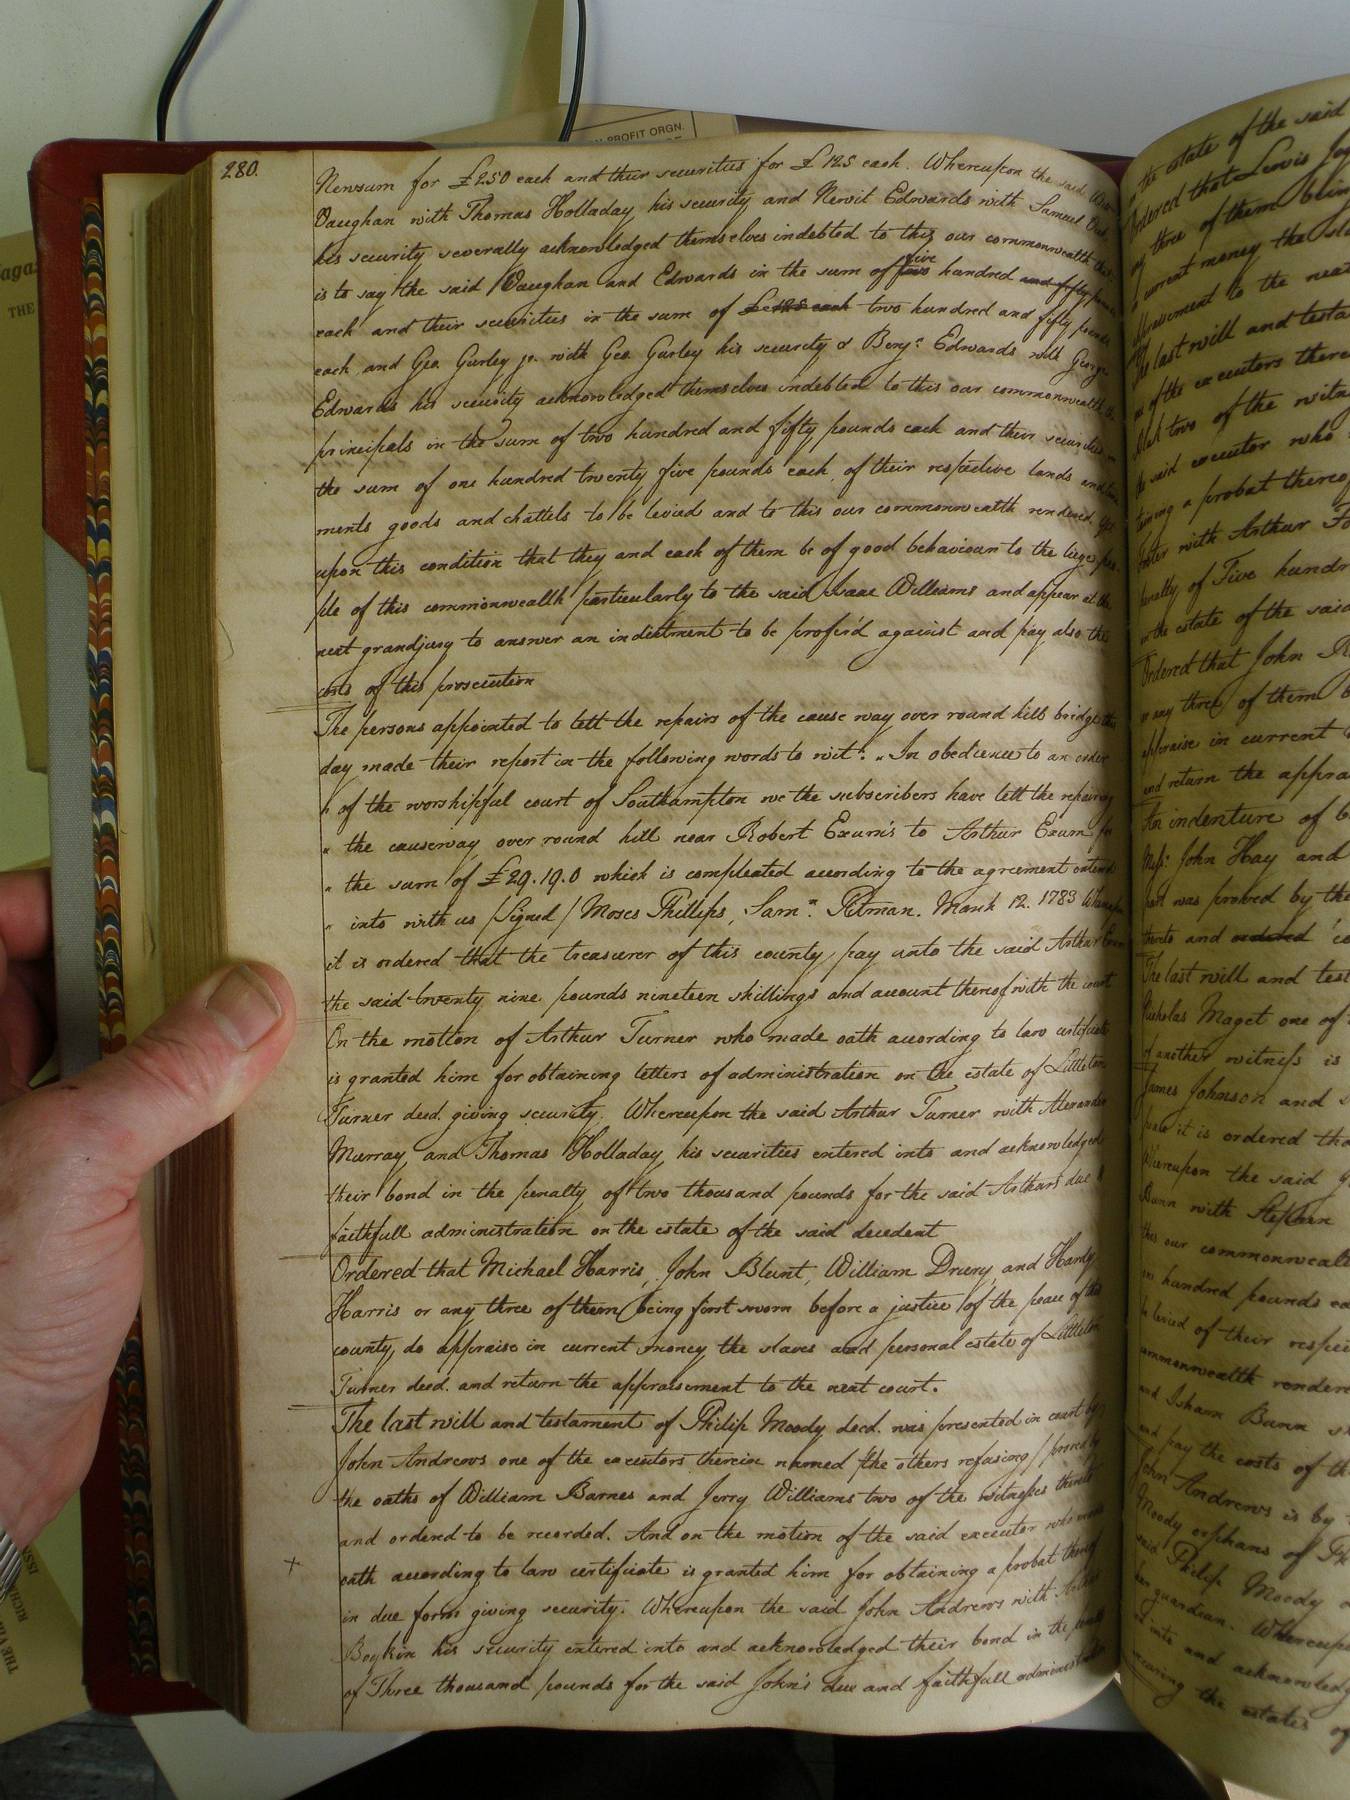 280.
Newsum for £250 each and their securities for £125 each. Whereupon the said
Vaughan with Thomas Holladay his security and Newit Edwards with Samuel
his security severally acknowledged themselves indebted to this our commonwealth that
is to say the said Vaughan and Edwards in the sum of five hundred and fifty pounds
each and their securities in the sum of £125 each two hundred and fifty pounds
each and Geo. Gurley jr. with Geo Gurley his security & Benja. Edwards with George
Edwards his security acknowledged themselves indebted to this our commonwealth the
principals in the sum of two hundred and fifty pounds each and their securities in
the sum of one hundred twenty five pounds each, of their respective lands and tene
ments goods and chattels to be levied and to this our commonwealth rendered. Yet
upon this condition that they and each of them be of good behaviour to the liege peo
ple of this commonwealth particularly to the said Isaac Williams and appear at the
next grandjury to answer an indictment to be profer'd against and pay also the
costs of this prosecution
The persons appointed to lett the repairs of the cause way over round hill bridge this
day made their report in the following words to wit: "In obedience to an order
" of the worshipful court of Southampton we the subscribers have lett the repairing
" the causeway over round hill near Robert Exum's to Arthur Exum for
" the sum of £29.19.0 which is compleated according to the agreement enterd
" into with us /Signed/ Moses Phillips, Saml. Pitman. March 12. 1783 Whereupon
it is ordered that the treasurer of this county pay unto the said Arthur Exum
the said twenty nine pounds nineteen shillings and account thereof with the court
On the motion of Arthur Turner who made oath according to law certificate
is granted him for obtaining letters of administration on the estate of Littleton
Turner decd. giving security. Whereupon the said Arthur Turner with Alexander
Murray and Thomas Holladay his securities entered into and acknowledged
their bond in the penalty of two thousand pounds for the said Arthurs due &
faithfull administration on the estate of the said decedent
Ordered that Michael Harris, John Blunt, William Drury, and Hardy
Harris or any three of them being first sworn before a justice of the peace of this
county, do appraise in current money the slaves and personal estate of Littleton
Turner decd. and return the appraisement to the next court.
The last will and testament of Philip Moody decd. was presented in court by
John Andrews one of the executors therein named /the others refusing/ proved by
the oaths of William Barnes and Jerry Williams two of the witnesses thereto
and ordered to be recorded. And on the motion of the said executor who made
+ oath according to law certificate is granted him for obtaining a probat thereof
in due form giving security. Whereupon the said John Andrews with
Boykin his security entered into and acknowledged their bond in the penalty
of Three thousand pounds for the said John's due and faithfull administration
the estate of the said
Ordered that Lewis
or three of them being
current money the
appraisement to the next
The last will and testa
of the executors there
two of the witn
the said executor who
taining a probat thereof
with Arthur
penalty of Five hundr
on the estate of the said
Ordered that John
or any three of them
appraise in current
and return the appra
An indenture of
Messrs. John Hay and
part was proved by the
thereto and ordered
The last will and test
Nicholas Maget one of
of another witness is
James Johnson and
it is ordered tha
Whereupon the said
Bunn with Stephen
this our commonwealt
hundred pounds
be levied of their respe
commonwealth rendere
and Isham Bunn
and pay the costs of th
John Andrews is by
Moody orphans of
said Philip Moody
guardian. Whereup
into and acknowledg
the estates of
N PROFIT ORGN.
THE